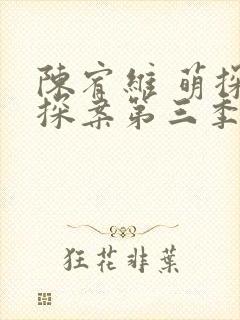 陳宥維 萌探
探案第三季
狂花非葉